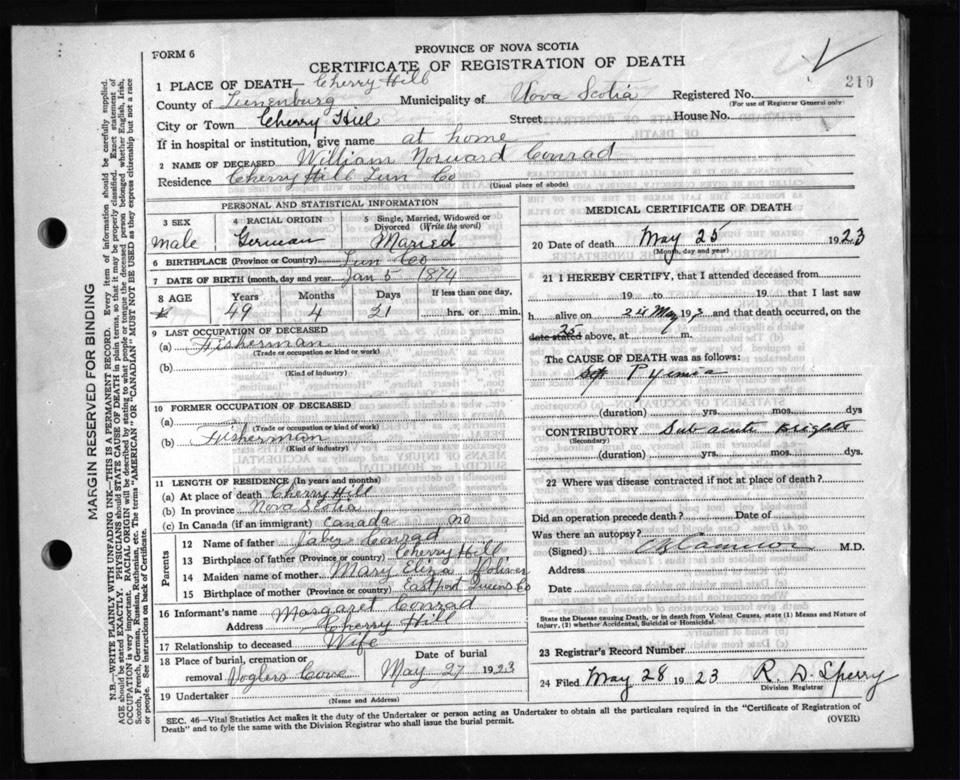 PROVINCE OF NOVA SCOTIA
FORM 6
CERTIFICATE OF REGISTRATION OF DEATH
210
1 PLACE OF DEATH— Cherry Hill
County of Lunenburg Municipality of Nova Scotia Registered No.
(For use of Registrar General only)
City or Town Cherry Hill Street House No.
If in hospital or institution, give name at home
2 NAME OF DECEASED William Norward Conrad
Residence Cherry Hill Lun Co
(Usual place of abode)
PERSONAL AND STATISTICAL INFORMATION
3 SEX
male
4 RACIAL ORIGIN
German
5 Single, Married, Widowed or
Divorced (Write the word)
Maried
6 BIRTHPLACE (Province or Country) Lun Co
7 DATE OF BIRTH (month, day and year) Jan 5 1874
8 AGE Years Months Days If less than one day,
49 4 21 hrs. or min.
9 LAST OCCUPATION OF DECEASED
(a) Fisherman
(Trade or occupation or kind or work)
(b)
(Kind of industry)
10 FORMER OCCUPATION OF DECEASED
(a)
(Trade or occupation or kind of work)
(b) Fisherman
(Kind of industry)
11 LENGTH OF RESIDENCE (In years and months)
(a) At place of death Cherry Hill
(b) In province Nova Scotia
(c) In Canada (if an immigrant) Canada no
Parents
12 Name of father Jabez Conrad
13 Birthplace of father (Province or country) Cherry Hill
14 Maiden name of mother Mary Eliza
15 Birthplace of mother (Province or country) Eastport Queens Co
16 Informant's name Margaret Conrad
Address Cherry Hill
17 Relationship to deceased Wife
18 Place of burial, cremation or Date of burial
removal Voglers Cove May 27 1923
19 Undertaker
(Name and Address)
MEDICAL CERTIFICATE OF DEATH
20 Date of death May 25 1923
(Month, day and year)
21 I HEREBY CERTIFY, that I attended deceased from
19 to 19 that I last saw
h alive on 24 May 192 and that death occurred, on the
date stated 25 above, at m.
The CAUSE OF DEATH was as follows:
Pyemia
(duration) yrs. mos. dys
CONTRIBUTORY Sub acute Brights
(Secondary)
(duration) yrs. mos. dys.
22 Where was disease contracted if not at place of death?
Did an operation precede death? Date of
Was there an autopsy?
(Signed) Cameron M.D.
Address
Date
State the Disease causing Death, or in death from Violent Causes, state (1) Means and Nature of
Injury, (2) whether Accidental, Suicidal or Homicidal.
23 Registrar's Record Number
24 Filed May 28 1923 R. D. Sperry
Division Registrar
SEC. 46—Vital Statistics Act makes it the duty of the Undertaker or person acting as Undertaker to obtain all the particulars required in the "Certificate of Registration of
Death" and to fyle the same with the Division Registrar who shall issue the burial permit.
(OVER)
MARGIN RESERVED FOR BINDING
N.B.—WRITE PLAINLY WITH UNFADING INK—THIS IS A PERMANENT RECORD. Every item of information should be carefully supplied.
AGE should be stated EXACTLY. PHYSICIANS should STATE CAUSE OF DEATH in plain terms, so that it may be properly classified. Exact statement of
OCCUPATION is very important. RACIAL ORIGIN will be described by stating to what people or tongue the deceased person belonged whether English, Irish,
Scotch, French, German, Russian, Ruthenian, etc. The terms "AMERICAN" OR "CANADIAN" MUST NOT BE USED as they express citizenship but not a race
or people. See instructions on back of Certificate.